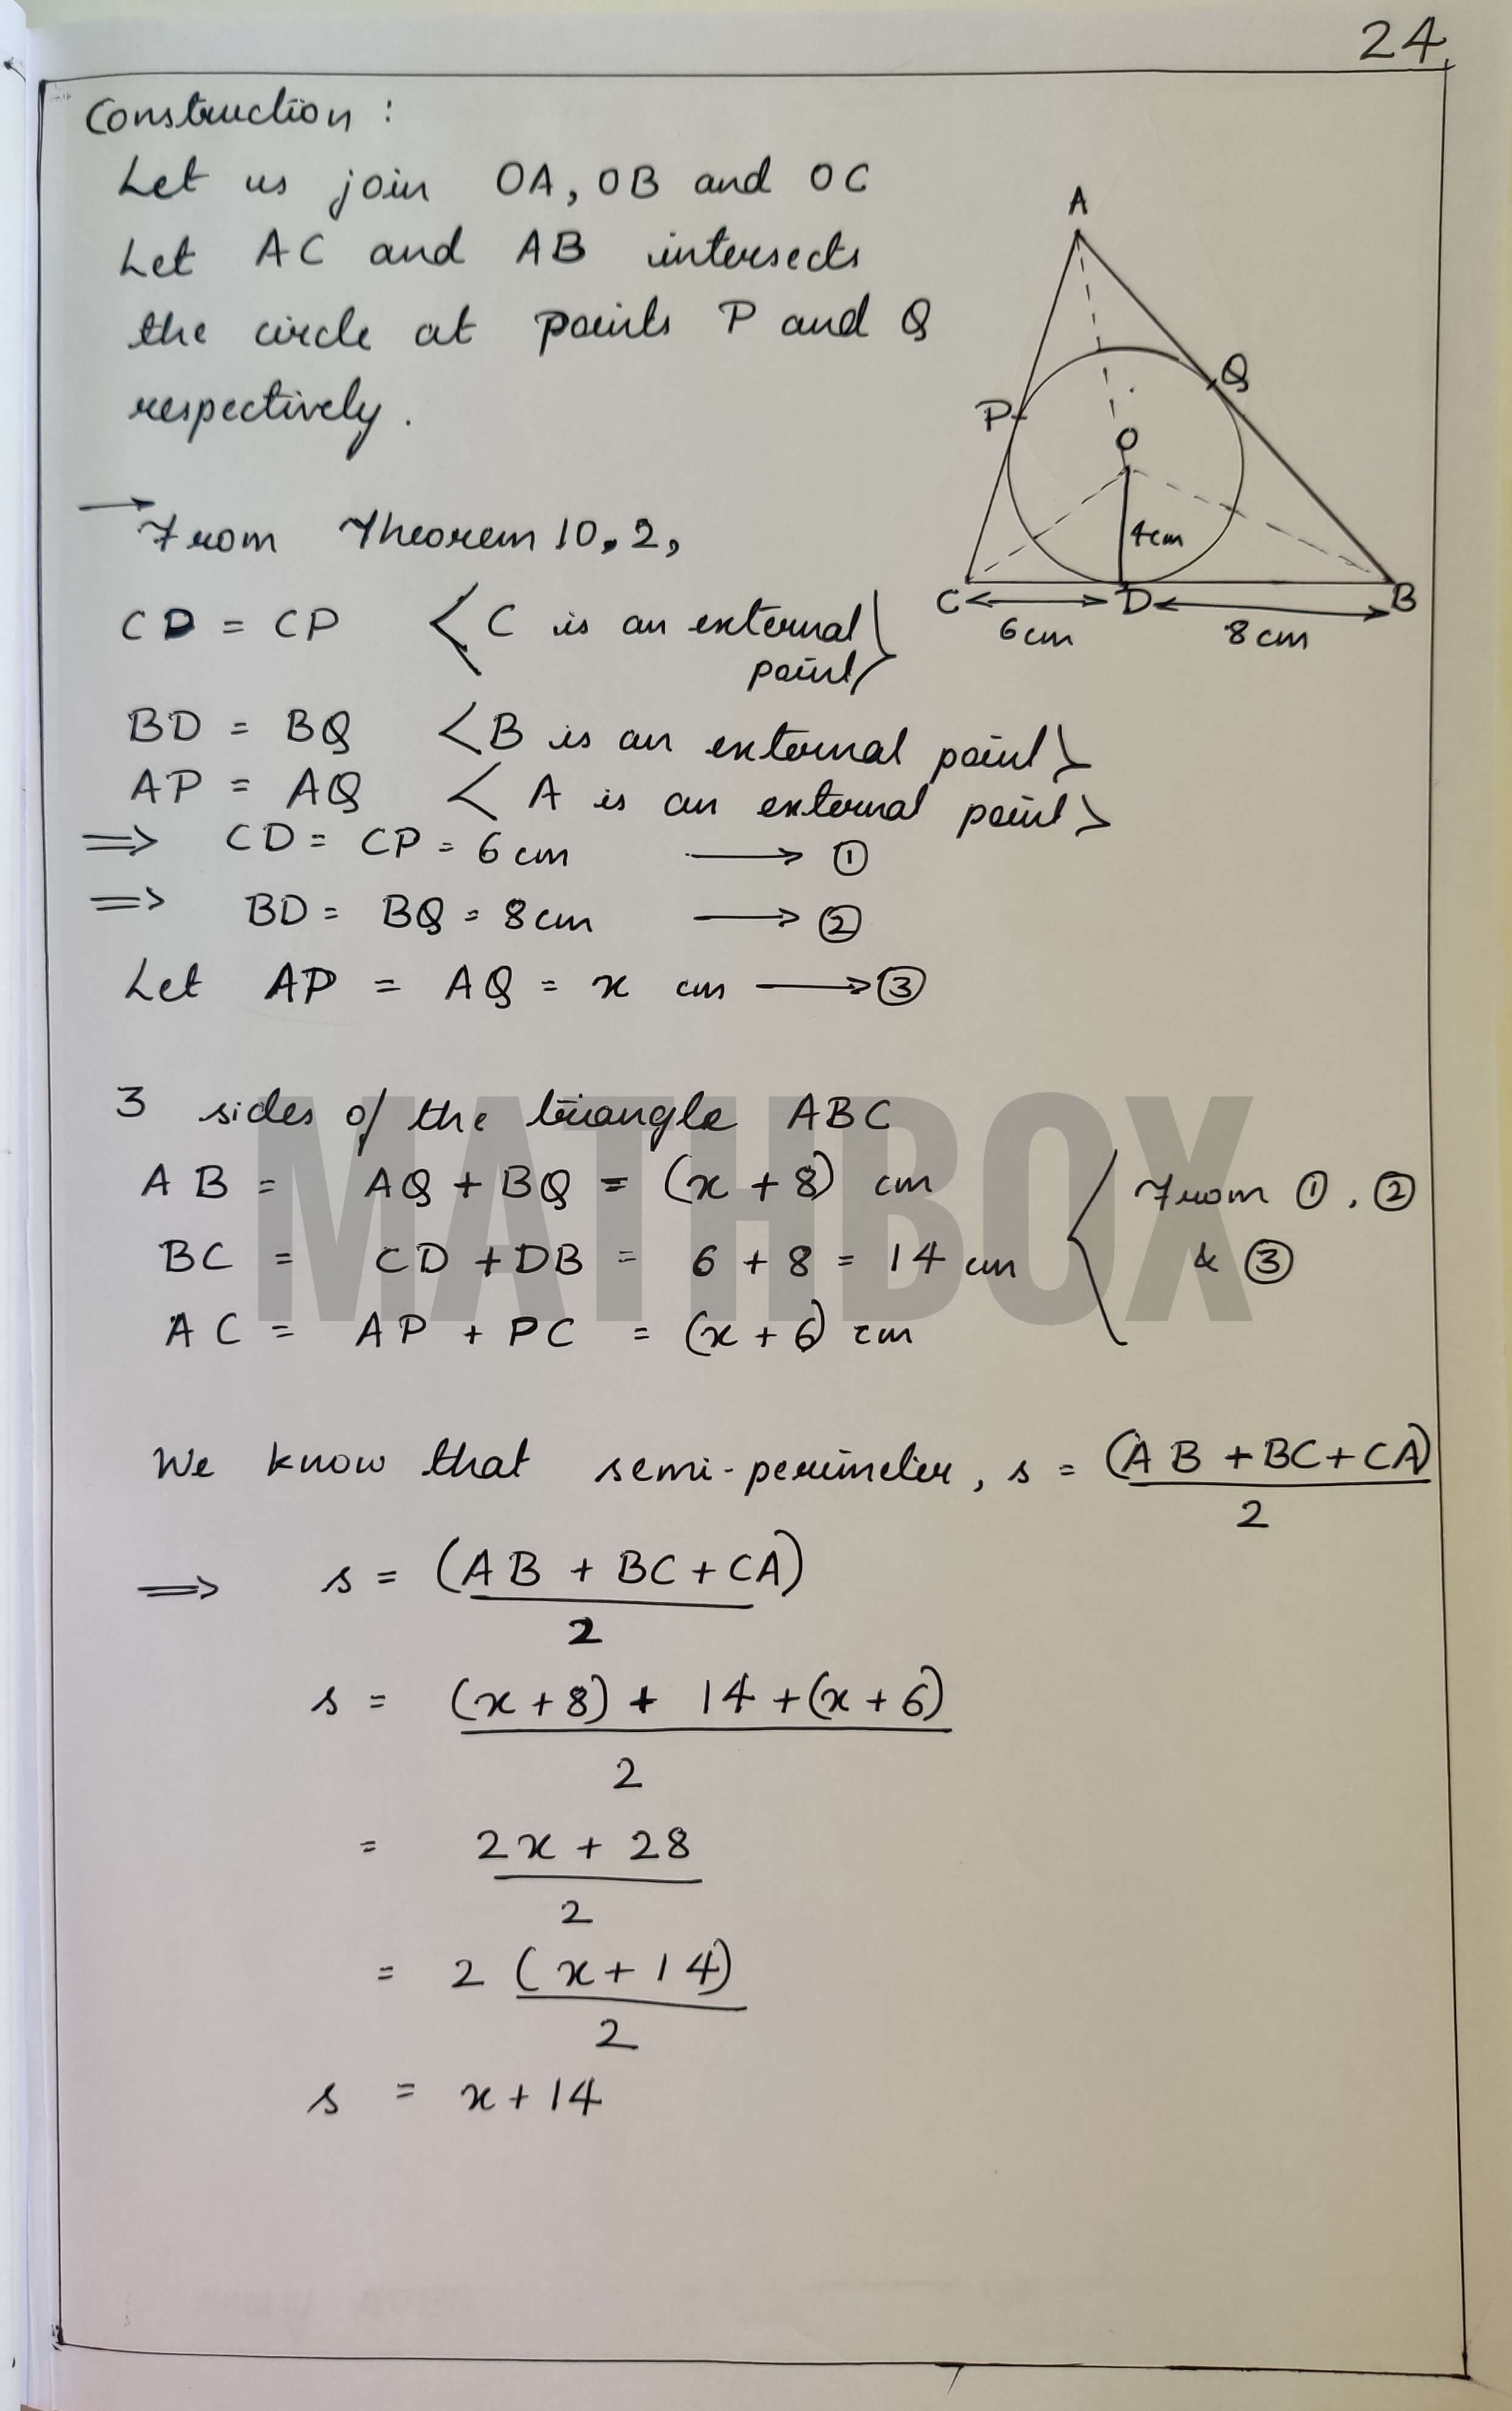 24
Construction :
Let us join OA, OB and OC
Let AC and AB intersects
the circle at points P and Q
respectively.
A
Q
P
O
4cm
C D B
6cm 8cm
→ From Theorem 10.2,
CD = CP < C is an external
point >
BD = BQ < B is an external point >
AP = AQ < A is an external point >
⇒ CD = CP = 6cm → ①
⇒ BD = BQ = 8cm → ②
Let AP = AQ = x cm → ③
MATHBOX
3 sides of the triangle ABC
AB = AQ + BQ = (x + 8) cm
BC = CD + DB = 6 + 8 = 14 cm
AC = AP + PC = (x + 6) cm
From ①, ②
& ③
We know that semi-perimeter, s = (AB + BC + CA)
2
⇒ s = (AB + BC + CA)
2
s = (x + 8) + 14 + (x + 6)
2
= 2x + 28
2
= 2 (x + 14)
2
s = x + 14